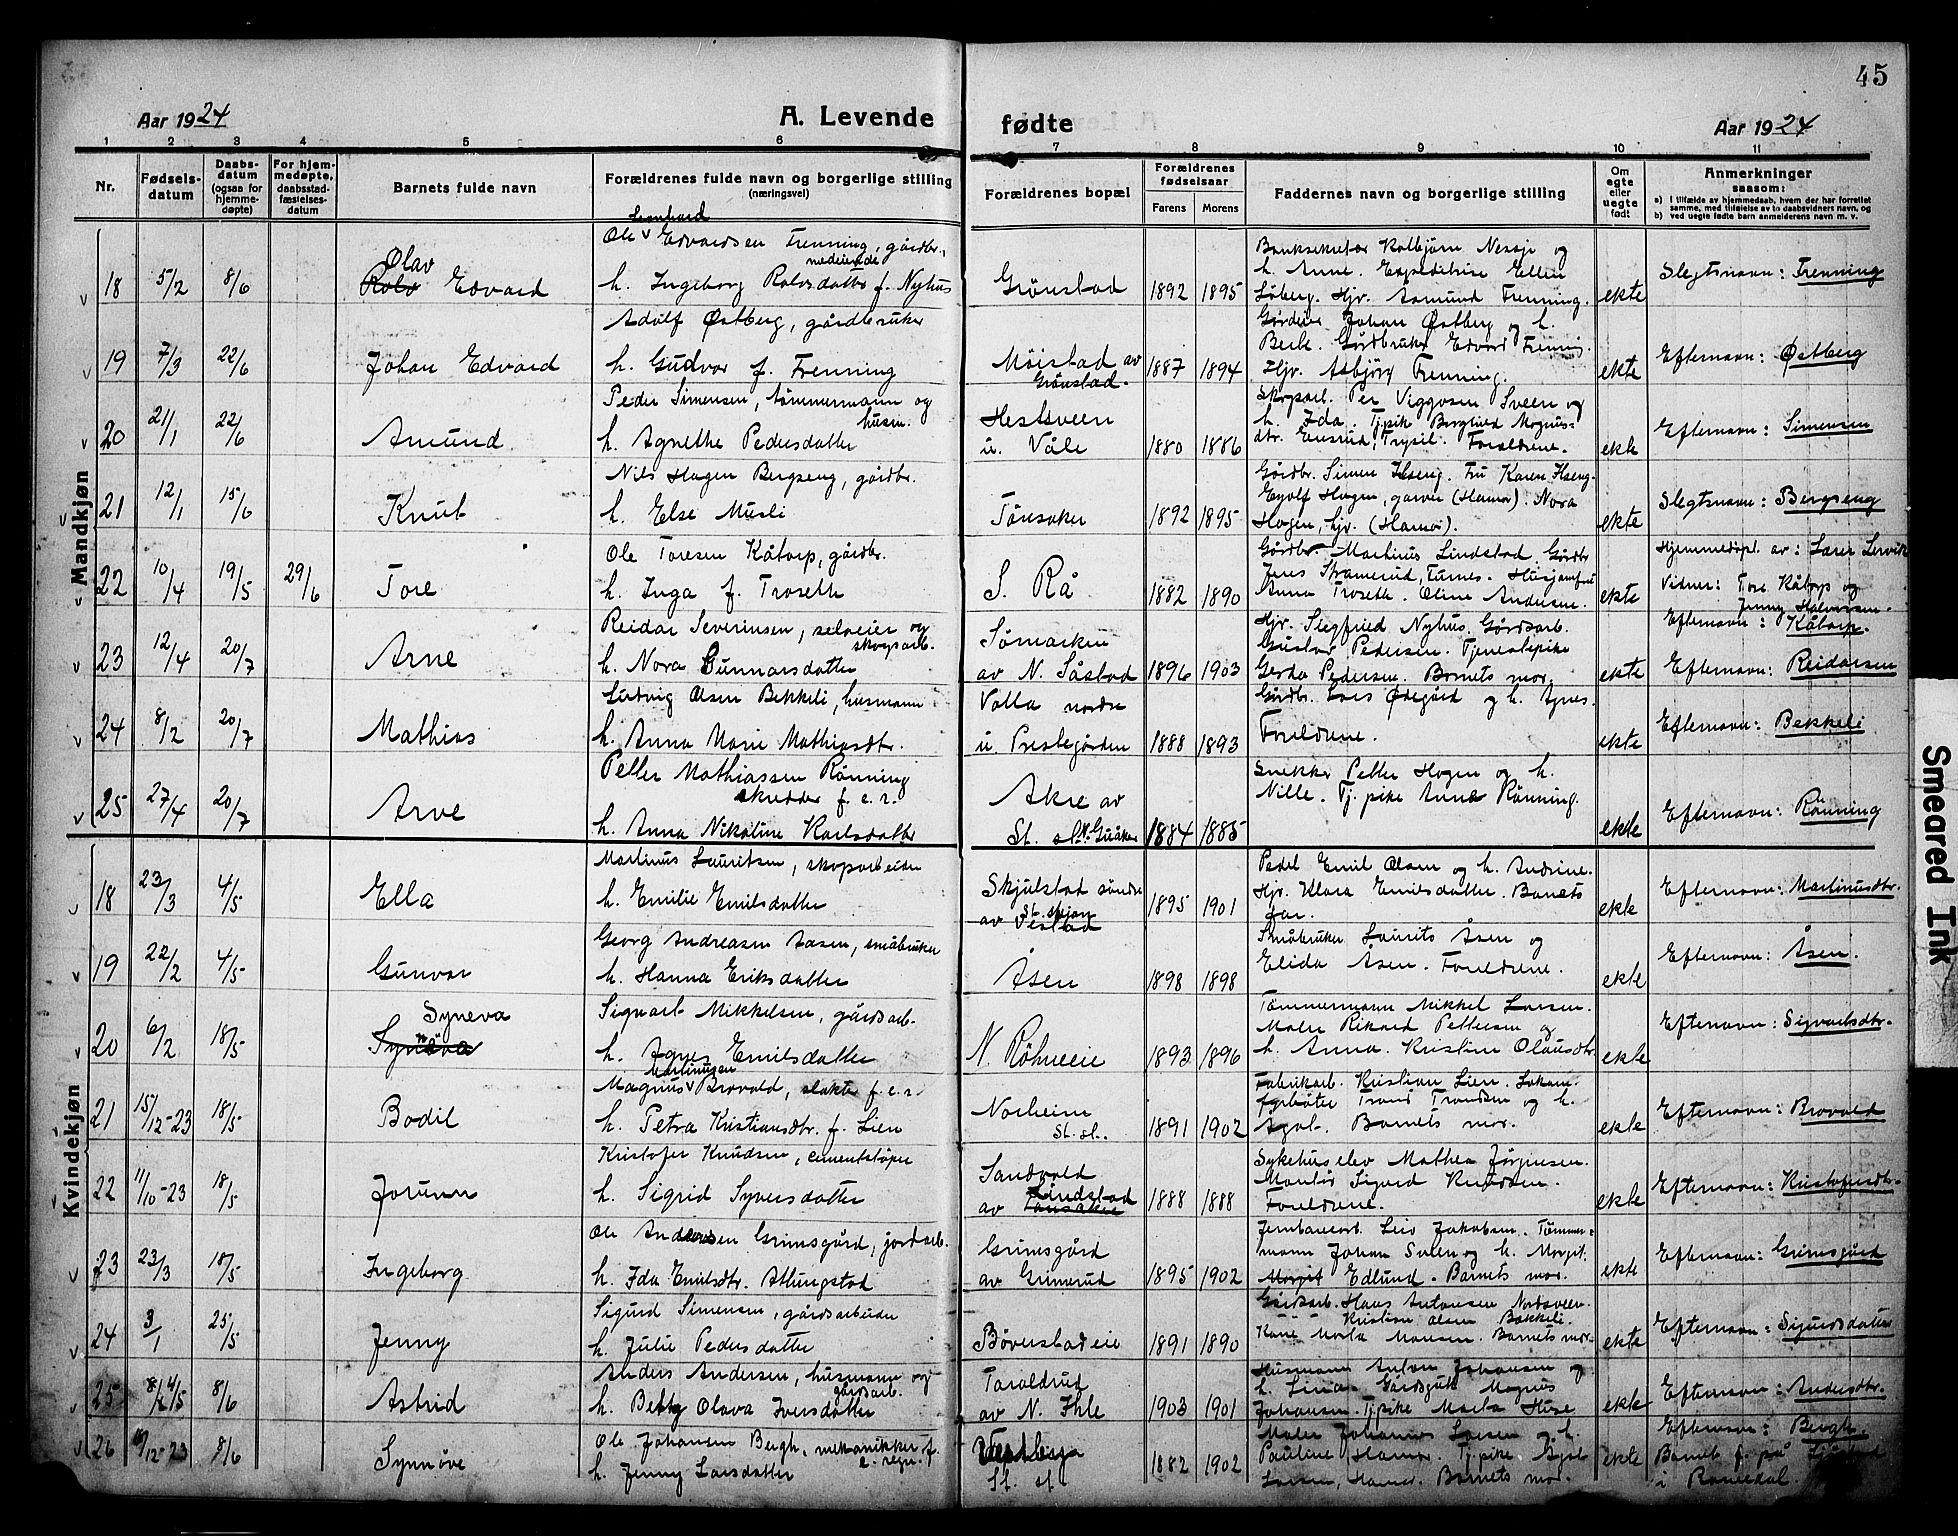 45
Aar 1924
A. Levende
fødte
Aar 1924
1 2 3 4 5 6 7 8 9 10 11
Nr.
Fødselsdatum
Daabsdatum (ogsaa for hjemmedøpte)
For hjemmedøpte, daabsstadfæstelsesdatum
Barnets fulde navn
Forældrenes fulde navn og borgerlige stilling (næringsvei)
Forældrenes bopæl
Forældrenes fødselsaar
Farens Morens
Faddernes navn og borgerlige stilling
Om egte eller uegte født
Anmerkninger saasom:
a) I tilfælde av hjemmedaab, hvem der har forrettet samme, med tilføielse av to daabsvidners navn, og
b) ved uegte fødte barn anmelderens navn m. v.
Mandkjøn
18 5/2 8/6 Olav Rolv Edvard
Ole Leonhard Edvardsen Frenning, gårdbr., medeiende
h. Ingeborg Rolvsdatter f. Nyhus
Grønstad 1892 1895
Banksekretær Kolbjørn Nessje og
h. Anne. Expeditrise Ellen
Løberg. Hjr. Asmund Frenning.
ekte Slegtsnavn: Frenning
19 7/3 22/6 Johan Edvard
Adolf Østberg, gårdbruker
h. Gudvor f. Frenning
Møistad av Grønstad. 1887 1894
Gårdeier Johan Østberg og h.
Berte. Gårdbruker Edvard Frenning
Hjr. Asbjørg Frenning.
ekte Efternavn: Østberg
20 21/1 22/6 Amund
Peder Simensen, tømmermann og husm.
h. Agnethe Pedersdatter
Hestsveen
u. Våle 1880 1886
Skogsarb. Per Viggosen Sveen og
h. Ida. Tj.pike Borghild Magnus-
dtr. Ensrud, Trysil. Foreldrene.
ekte Efternavn: Simensen
21 12/1 15/6 Knut
Nils Hagen Bergseng, gårdbr.
h. Else Musli
Tønsaker 1892 1895
Gårdbr. Simen Hseng. Fru Karen Hseng.
Eyolf Hagen, garver (Hamar). Nora
Hagen, hjr. (Hamar).
ekte Slegtsnavn: Bergseng
22 10/4 19/5 29/6 Tore
Ole Toresen Kåtorp, gårdbr.
h. Inga f. Trosette
S. Rå 1882 1890
Gårdbr. Martinus Lindstad. Gårdbr
Jens Stramerud, Furnes. Husjomfru
Anna Trosette. Oline Andersen.
ekte Hjemmedøpt av: Lærer Lervik
Vidner: Tore Kåtorp og
Jenny Halvorsen.
Efternavn: Kåtorp.
23 12/4 20/7 Arne
Reidar Severinsen, selveier og skogsarb.
h. Nora Gunnarsdatter
Sømarken
av N. Såstad 1896 1903
Hjr. Siegfried Nyhus. Gårdsarb.
Gustav Pedersen. Tjenestepike
Gerda Pedersen. Barnets mor.
ekte Efternavn: Reidarsen
24 8/2 20/7 Mathias
Ludvig Olsen Bekkeli, husmann
h. Anna Marie Mathiasdtr.
Valla nordre
u. Prestegården 1888 1893
Gårdbr. Lars Ødegård og h. Agnes.
Foreldrene.
ekte Efternavn: Bekkeli
25 27/4 20/7 Arve
Petter Mathiassen Rønning
skredder f. e. r.
h. Anna Nikoline Karlsdatter
Akre av
St. N. Guåker 1884 1885
Snekker Petter Hagen og h.
Nille. Tj.pike Anne Rønning.
ekte Efternavn: Rønning
Kvindekjøn
18 23/3 4/5 Ella
Martinus Lauritsen, skogsarbeider
h. Emilie Emilsdatter
Skjulstad søndre
av Vestad 1895 1901
Pedel Emil Olsen og h. Andrine.
Hjr. Klara Emilsdatter. Barnets
far.
ekte Efternavn: Martinusdtr.
19 22/2 4/5 Gunvor
Georg Andreasen Aasen, småbruker
h. Hanna Eriksdatter
Åsen 1898 1898
Småbruker Laurits Åsen og
Elida Åsen. Foreldrene.
ekte Efternavn: Åsen.
20 6/2 18/5 Syneva
Sigvart Mikkelsen, gårdsarb.
h. Agnes Emilsdatter
N. Røhneeie 1893 1896
Tømmermann Mikkel Larsen.
Maler Rikard Pettersen og
h. Anna. Kristine Olausdtr.
ekte Efternavn: Sigvartsdtr.
21 15/12-23 18/5 Bodil
Magnus Martinusen Brovold, slakter f. e. r.
h. Petra Kristiansdtr. f. Lien
Norheim
St. st. 1891 1902
Fabrikarb. Kristian Lien. Lokom.
fyrbøter Trond Trondsen og h.
Agot. Barnets mor.
ekte Efternavn: Brovold
22 11/10-23 18/5 Jorunn
Kristofer Knudsen, cementstøper
h. Sigrid Syversdatter
Sandvold
av Lindstad 1888 1888
Sykehuselev Mathea Jørgensen.
Montør Sigurd Knudsen.
Foreldrene.
ekte Efternavn: Kristofersdtr.
23 23/3 18/5 Ingeborg
Ole Andersen Grimsgård, jordarb.
h. Ida Emilsdtr. Atlungstad
Grimsgård
av Grimerud 1895 1902
Jernbanearb. Leif Jakobsen. Tømmer-
mann Johan Sveen og h. Margit.
Margit Edlund. Barnets mor.
ekte Efternavn: Grimsgård
24 3/1 25/5 Jenny
Sigurd Simensen, gårdsarbeider
h. Julie Pedersdatter
Bøverstadeie 1891 1890
Gårdsarb. Hans Antonsen Nordsveen.
Kristian Olsen Bakkeli.
Kone Marta Hansen. Barnets mor.
ekte Efternavn: Sigurdsdatter
25 4/5 8/6 Astrid
Anders Andersen, husmann og gårdsarb.
h. Betty Olava Iversdatter
Taraldrud
av N. Ihle 1903 1901
Husmann Anton Johansen og
h. Lina. Gårdsgutt Magnus
Johansen. Tj.pike Marta Huse
ekte Efternavn: Andersdtr.
26 12-23 8/6 Synnøve
Ole Johansen Bergh, mekanikker f. e. regn.
h. Jenny Larsdatter
Vestberg
St. st. 1882 1902
Maler Johannes Larsen og h.
Pauline, Hamar. Tj.pike Agot
Larsen, Hamar. Barnets mor.
ekte Efternavn: Bergh.
Barnet f. på
i Romedal.
Smeared Ink